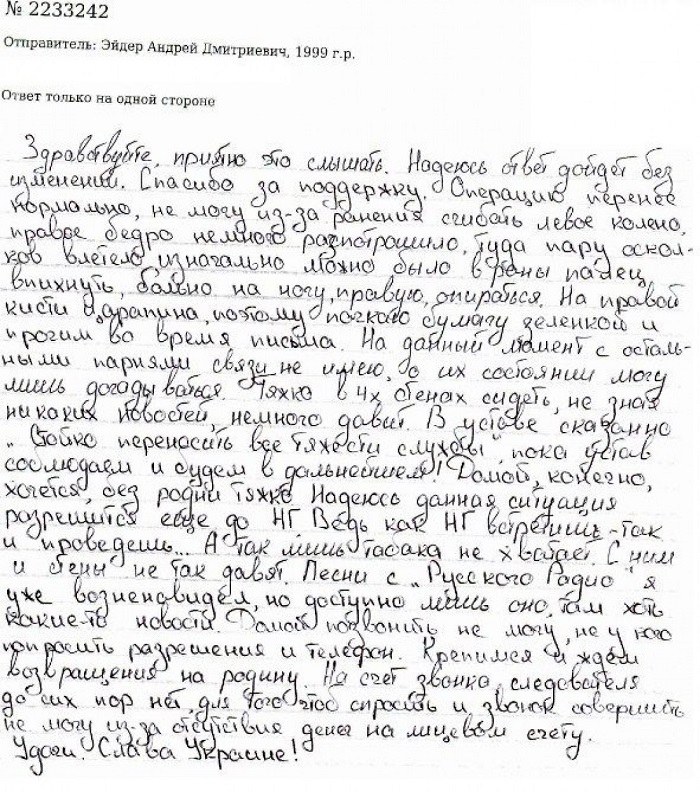 № 2233242
Отправитель: Эйдер Андрей Дмитриевич, 1999 г.р.
Ответ только на одной стороне
Здравствуйте, приятно это слышать. Надеюсь ответ дойдет без
изменений. Спасибо за поддержку. Операцию перенес
нормально, не могу из-за ранения сгибать левое колено,
правое бедро немного распотрошило, туда пару оскол-
ков влетело, изначально можно было в раны палец
впихнуть, больно на ногу, правую, опираться. На правой
кисти царапина, поэтому пачкаю бумагу зеленкой и
прочим во время письма. На данный момент с осталь-
ными парнями связи не имею, о их состоянии могу
лишь догадываться. Тяжко в 4х стенах сидеть, не зная
никаких новостей, немного давит. В уставе сказанно
„Стойко переносить все тяжести службы", пока устав
соблюдаем и будем в дальнейшем! Домой, конечно,
хочется, без родни тяжко. Надеюсь данная ситуация
разрешится еще до НГ. Ведь как НГ встретишь - так
и проведешь... А так лишь табака не хватает. С ним
и стены не так давят. Песни с „Русского Радио" я
уже возненавидел, но доступно лишь оно, там хоть
какие-то новости. Домой позвонить не могу, не у кого
попросить разрешения и телефон. Крепимся и ждем
возвращения на родину. На счет звонка, следователя
до сих пор нет, для того чтоб спросить и звонок совершить
не могу из-за отсутствия денег на лицевом счету.
Удачи. Слава Украине!